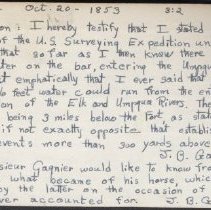 Oct. 20 - 1853 8:2
on: I hereby testify that I stated
of the U.S. Surveying Expedition un
that so far as I then knew there w
ter on the bar, entering the Umpqu
t emphatically that I ever said that
6 feet water could run from the en
on of the Elk and Umpqua Rivers. The
being 3 miles below the Fort as stat
if not exactly opposite that establi
events more than 300 yards above
J. B. Ga
sieur Gagnier would like to know from
what became of his horse which
by the latter on the occasion of
ver accounted for. J. B. G